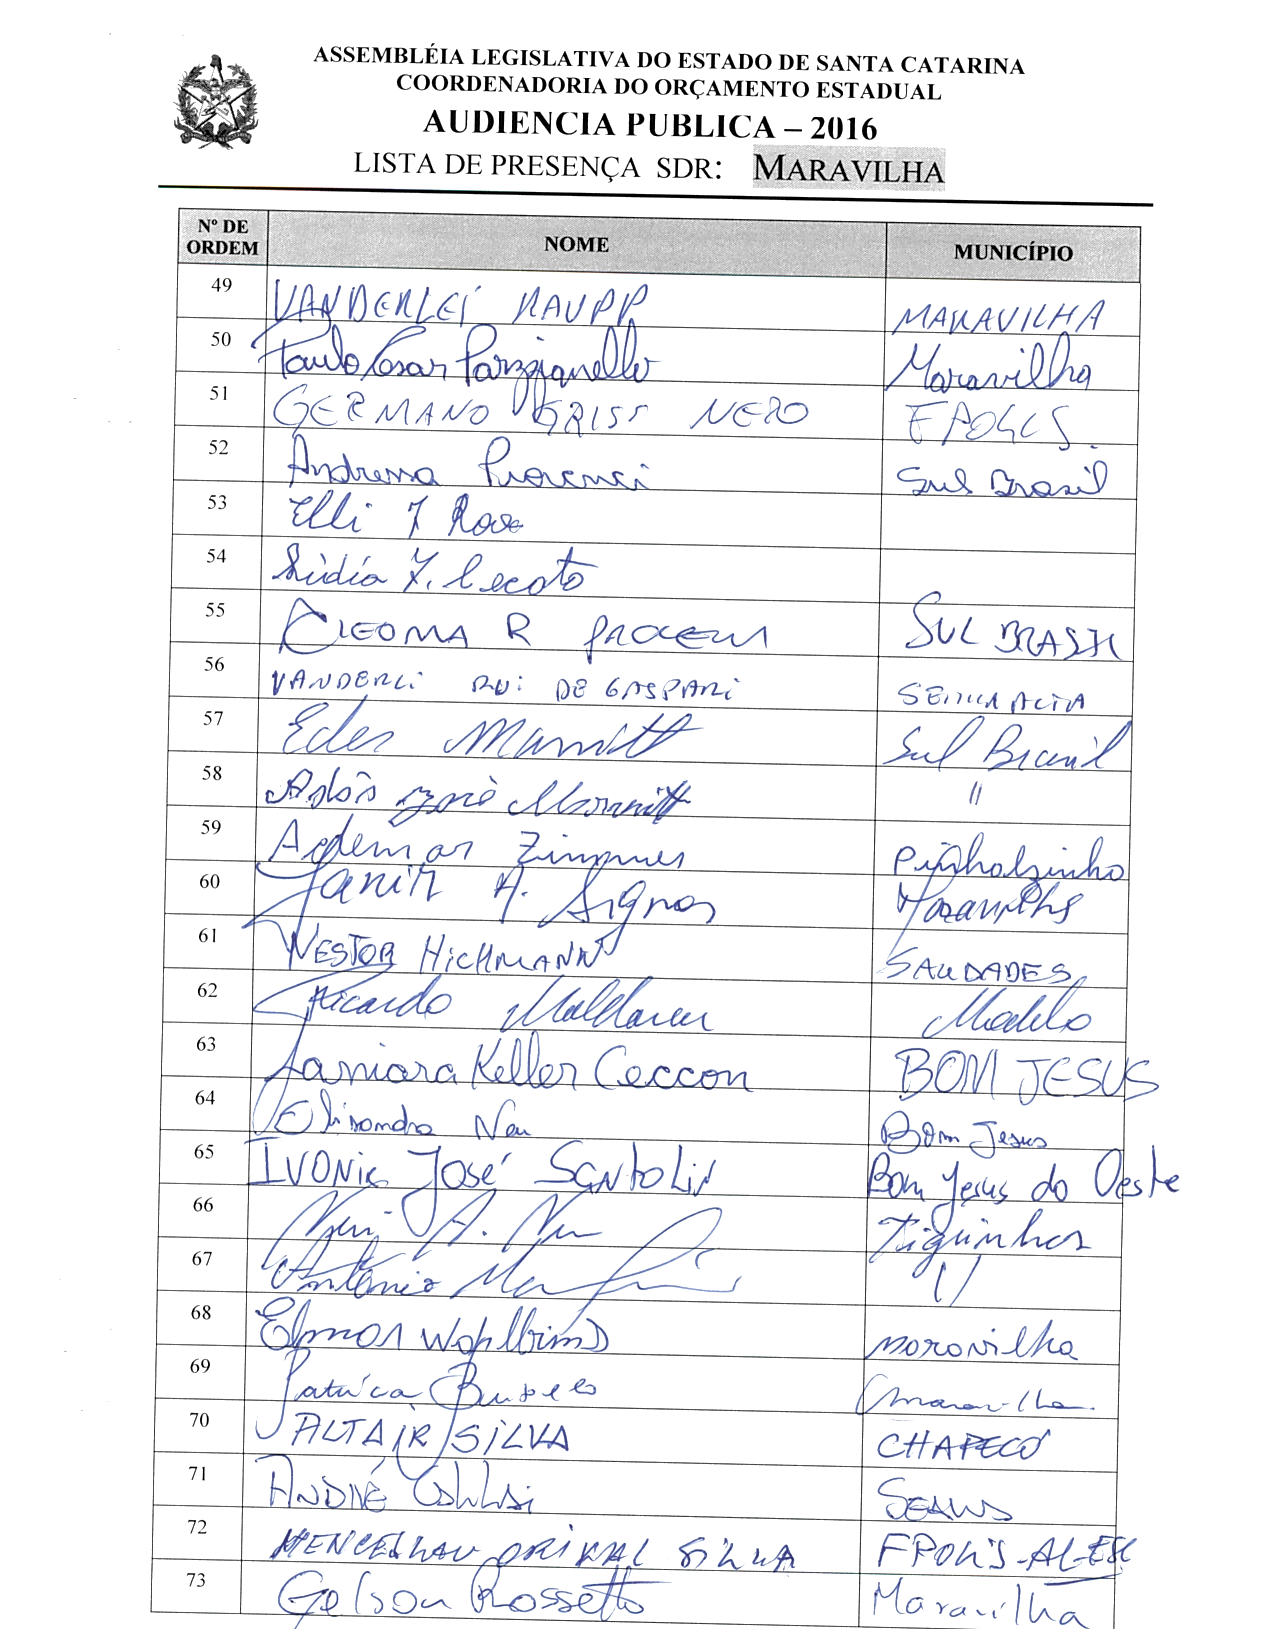 ASSEMBLÉIA LEGISLATIVA DO ESTADO DE SANTA CATARINA
COORDENADORIA DO ORÇAMENTO ESTADUAL
AUDIENCIA PUBLICA – 2016
LISTA DE PRESENÇA SDR: MARAVILHA
Nº DE ORDEM NOME MUNICÍPIO
49 VANDERLEI RAUPP MARAVILHA
50 Paulo Cesar Parzzianello Maravilha
51 GERMANO NERO FPOLIS.
52 Sul Brasil
53 Elli
54 Lidia
55 CLEOMA R Sul BRASIL
56 VANDERLI RUI DE GASPARI SERRA ALTA
57 Eder Sul Brasil
58 José "
59 Zimmer Pinhalzinho
60 A. Maravilha
61 NESTOR HICHMANN SAUDADES
62 Ricardo Maldaner Modelo
63 Keller Ceccon BOM JESUS
64 Elisandra Bom Jesus
65 IVONIR José SANtOLIN Bom Jesus do Oeste
66 A. Tigrinhos
67 Antônio
68 maravilha
69 Patrícia maravilha.
70 ALTAIR SILVA CHAPECÓ
71 ANDRÉ
72 SILVA FPOLIS-ALESC
73 Gelson Rossetto Maravilha